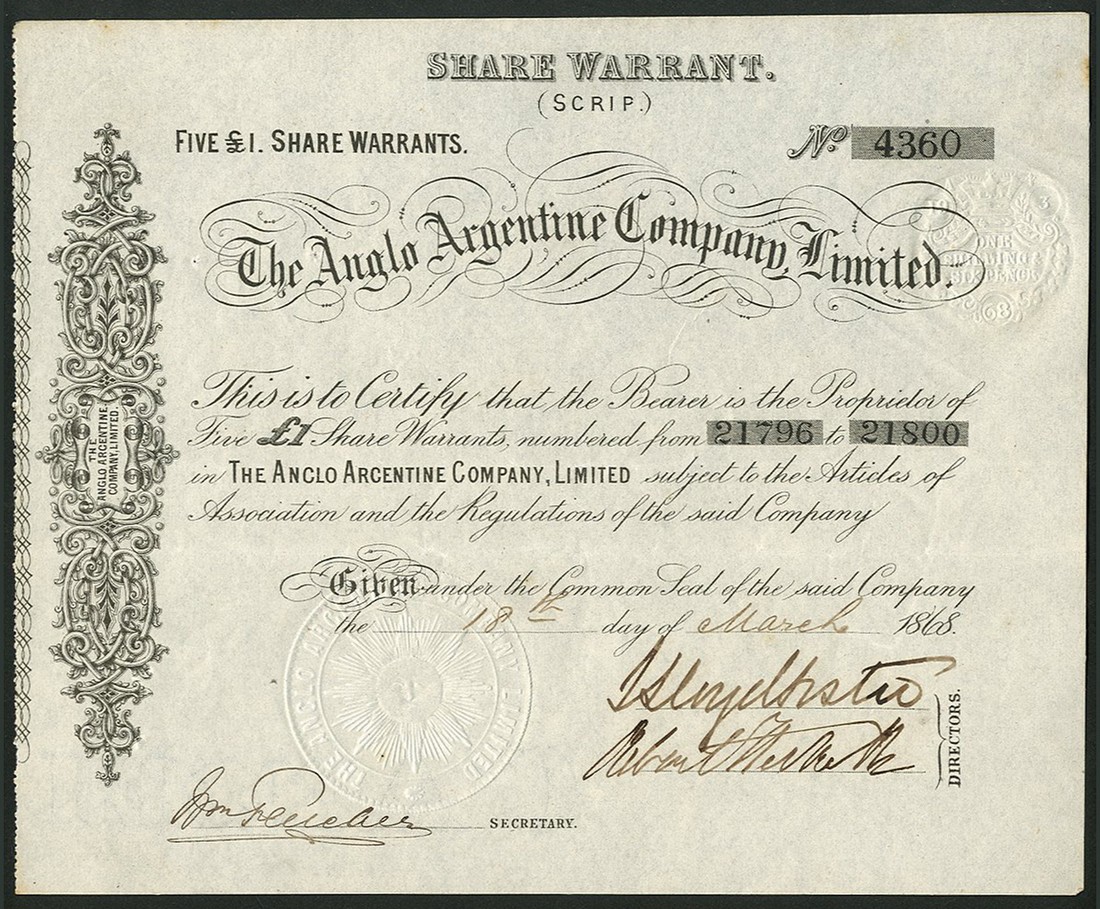 SHARE WARRANT.
(SCRIP.)
FIVE £1. SHARE WARRANTS.
No. 4360
The Anglo Argentine Company, Limited.
ONE
SHILLING &
SIXPENCE
68
This is to Certify that the Bearer is the Proprietor of
Five £1 Share Warrants, numbered from 21796 to 21800
in THE ANGLO ARGENTINE COMPANY, LIMITED subject to the Articles of
Association and the Regulations of the said Company
THE
ANGLO ARGENTINE
COMPANY, LIMITED.
Given under the Common Seal of the said Company
the 18th day of March 1868.
THE ANGLO ARGENTINE COMPANY LIMITED
DIRECTORS.
SECRETARY.